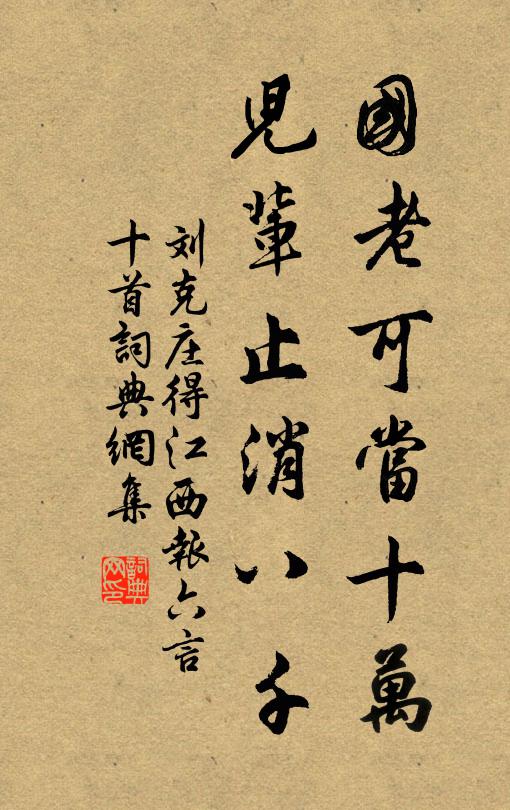 國老可當十萬
兒輩止消八千
刘克庄得江西報六言
十首詞典網集
詞典
网印